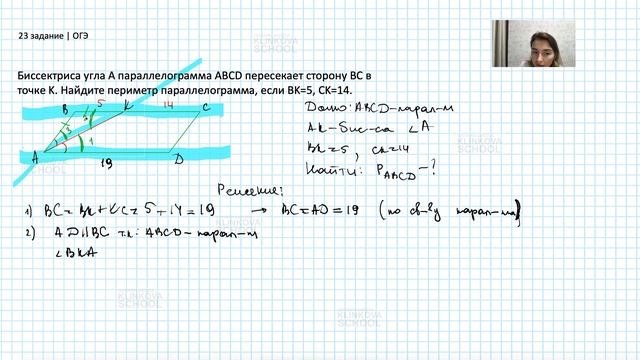 23 задание | ОГЭ
KLINKOVA
SCHOOL
Биссектриса угла A параллелограмма ABCD пересекает сторону BC в
точке K. Найдите периметр параллелограмма, если BK=5, CK=14.
B 5 K 14 C
3 2 1
A 19 D
SCHOOL
Дано: ABCD-парал-м
AK-бис-са ∠A
BK=5, CK=14
Найти: P ABCD -?
Решение:
1) BC=BK+KC=5+14=19 → BC=AD=19 (по св-ву парал-ма)
2) AD||BC т.к. ABCD-парал-м
∠BKA
KLINKOVA
SCHOOL
KLINKOVA
SCHOOL